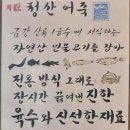 청산 어죽
금강 상류 1급수에 서식하는
자연산 민물고기를 잡아
전통방식 그대로
장시간 끓여낸 진한
육수와 신선한 재료